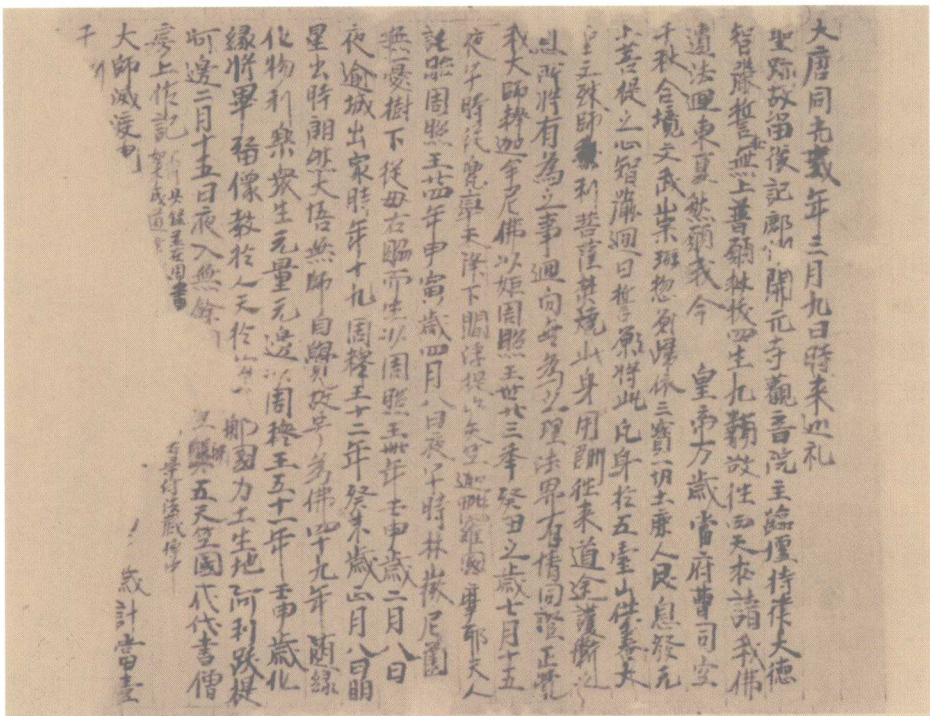 大唐同光貳年三月九日時来巡礼
聖跡故留後記鄜州開元寺觀音院主臨壇持律大德
智嚴誓求無上普願救拔四生九類敬往西天求請我佛
遺法迴東夏然願我今 皇帝万歲當府曹司空
千秋合境文武崇班惣願歸依三寶一切士庶人民息發无
上菩提之心智嚴迴日誓願將此凡身於五臺山供養大
聖文殊師利菩薩焚燒此身用酬往来道途護衛之
恩所將有為之事迴向無為之理法界有情同證正覺
我大師釋迦牟尼佛以姬周照王世廿三年癸丑之歲七月十五
夜半時從兜率天降下閻浮提於天竺迦毗羅國摩耶夫人
託胎周照王廿四年甲寅歲四月八日夜半時林微尼園
無憂樹下從母右脇而生以周照王卌年壬申歲二月八日
夜逾城出家時年十九周穆王十二年癸未歲正月八日明
星出時朗然大悟無師自覺從早為佛四十九年隨緣
化物利樂衆生无量无邊以周穆王五十一年壬申歲化
緣將畢福像教於人天於 那國力士生地阿利跋提
河邊二月十五日夜入無餘 五天竺國代代書僧
房上作記
大師滅度 歲計當臺
千